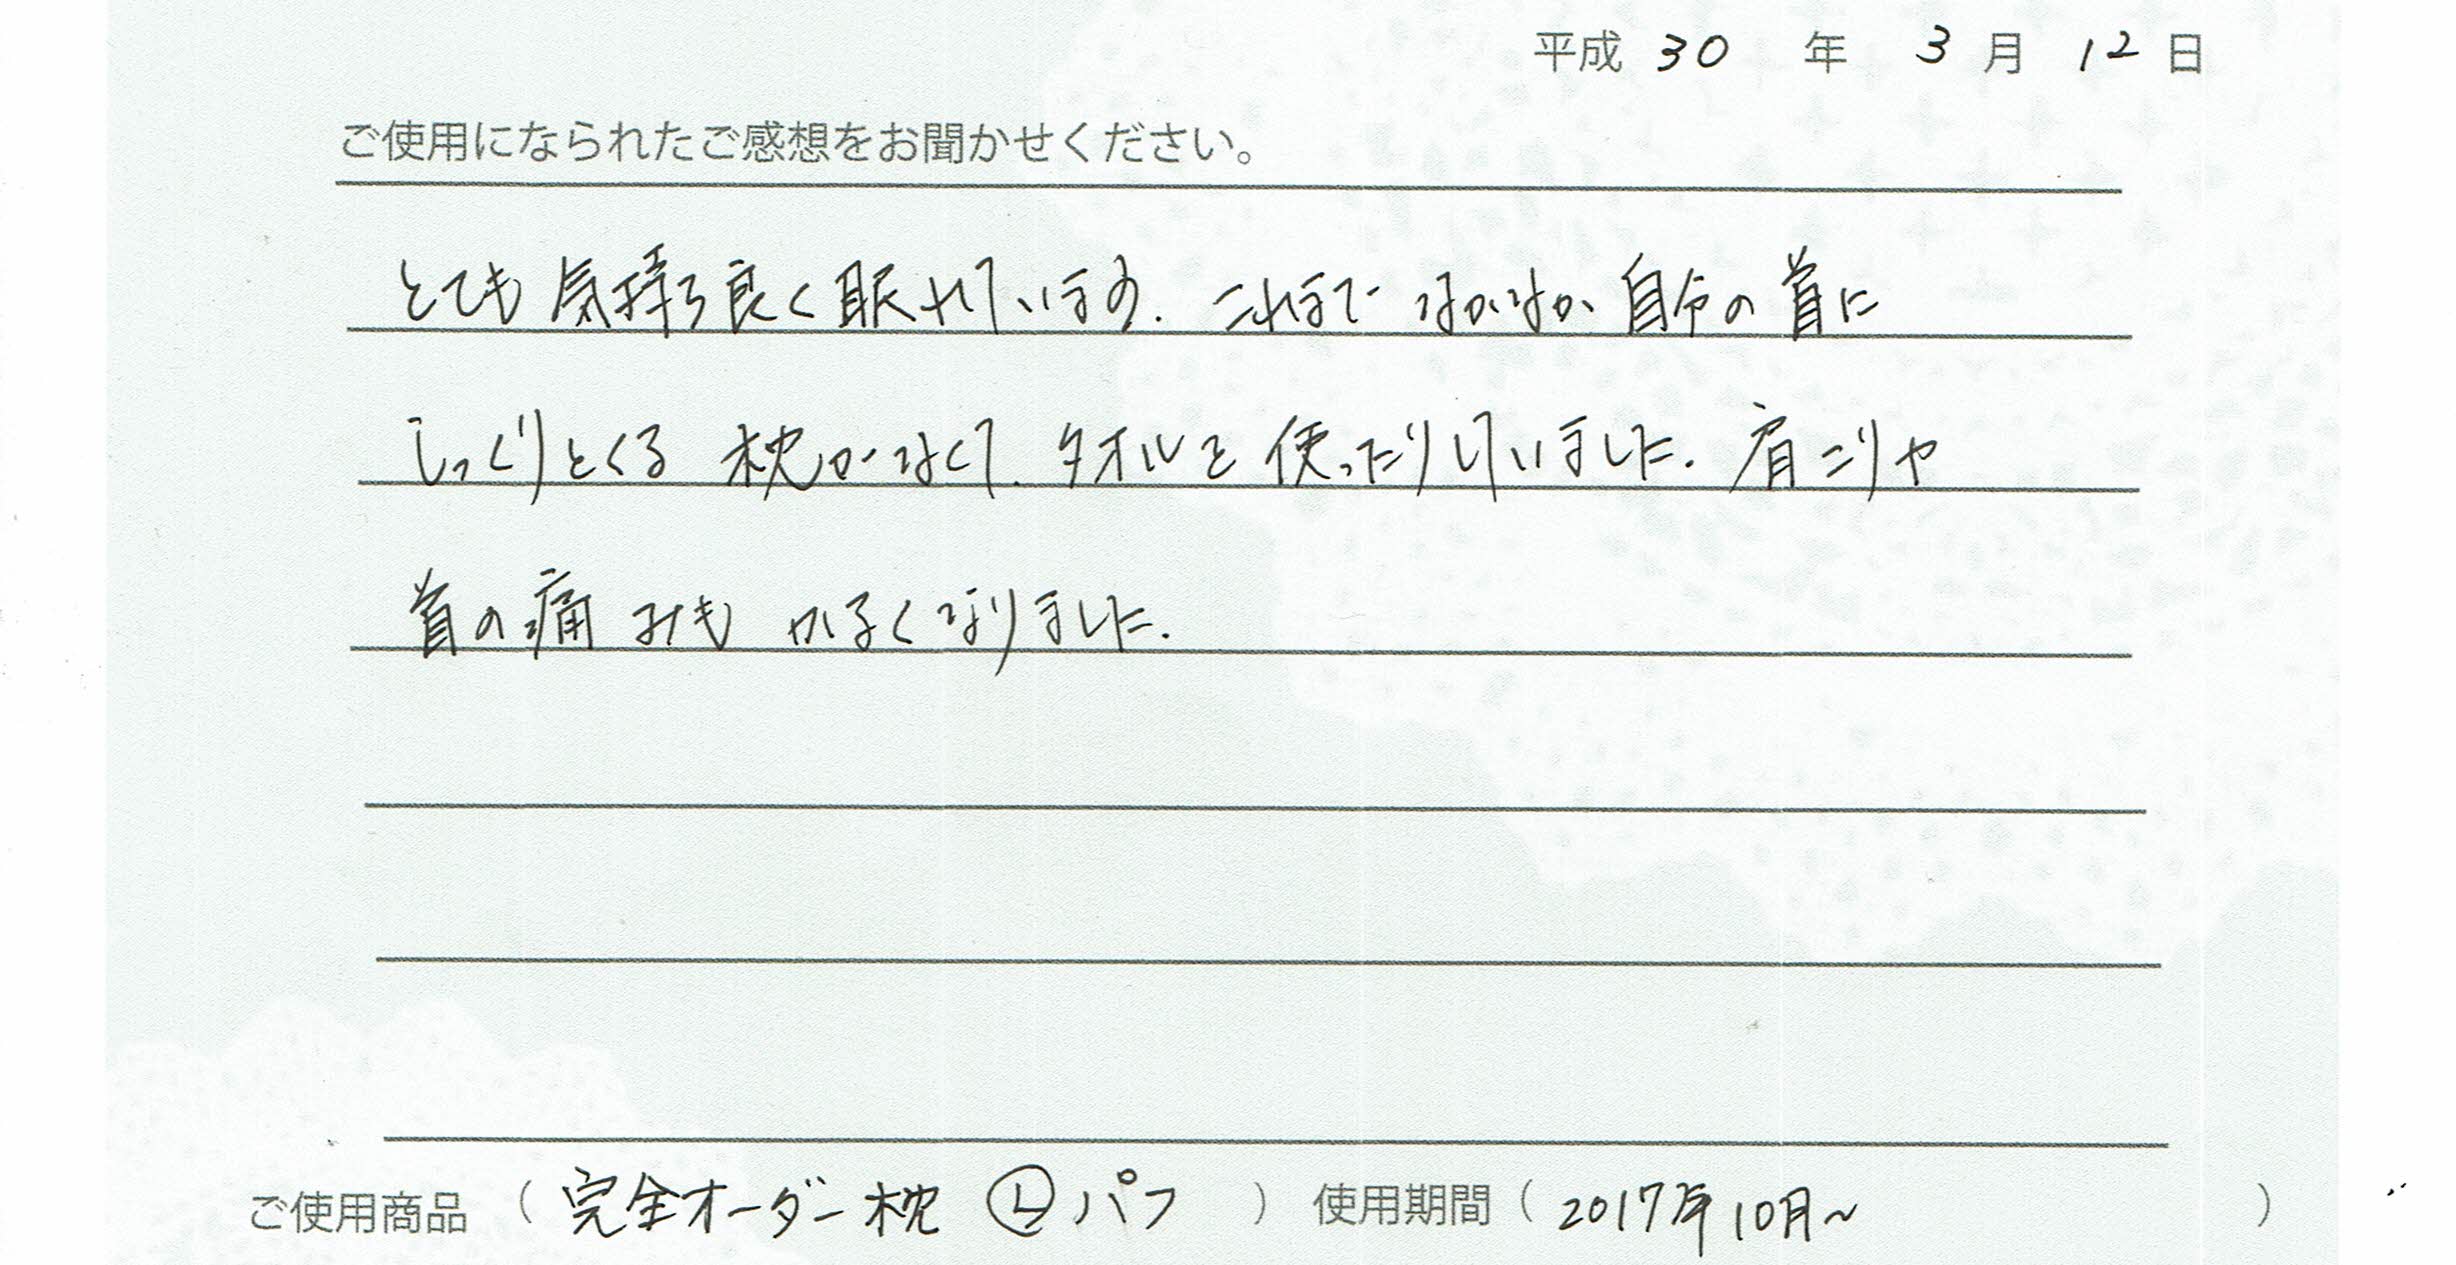 平成 30 年 3 月 12 日
ご使用になられたご感想をお聞かせください。
とても気持ち良く眠れています. これまで なかなか自分の首に
しっくりとくる 枕がなくて. タオルを使ったりしていました. 肩こりや
首の痛みも かるくなりました.
ご使用商品 ( 完全オーダー枕 Ⓛパフ ) 使用期間 ( 2017年10月~ )